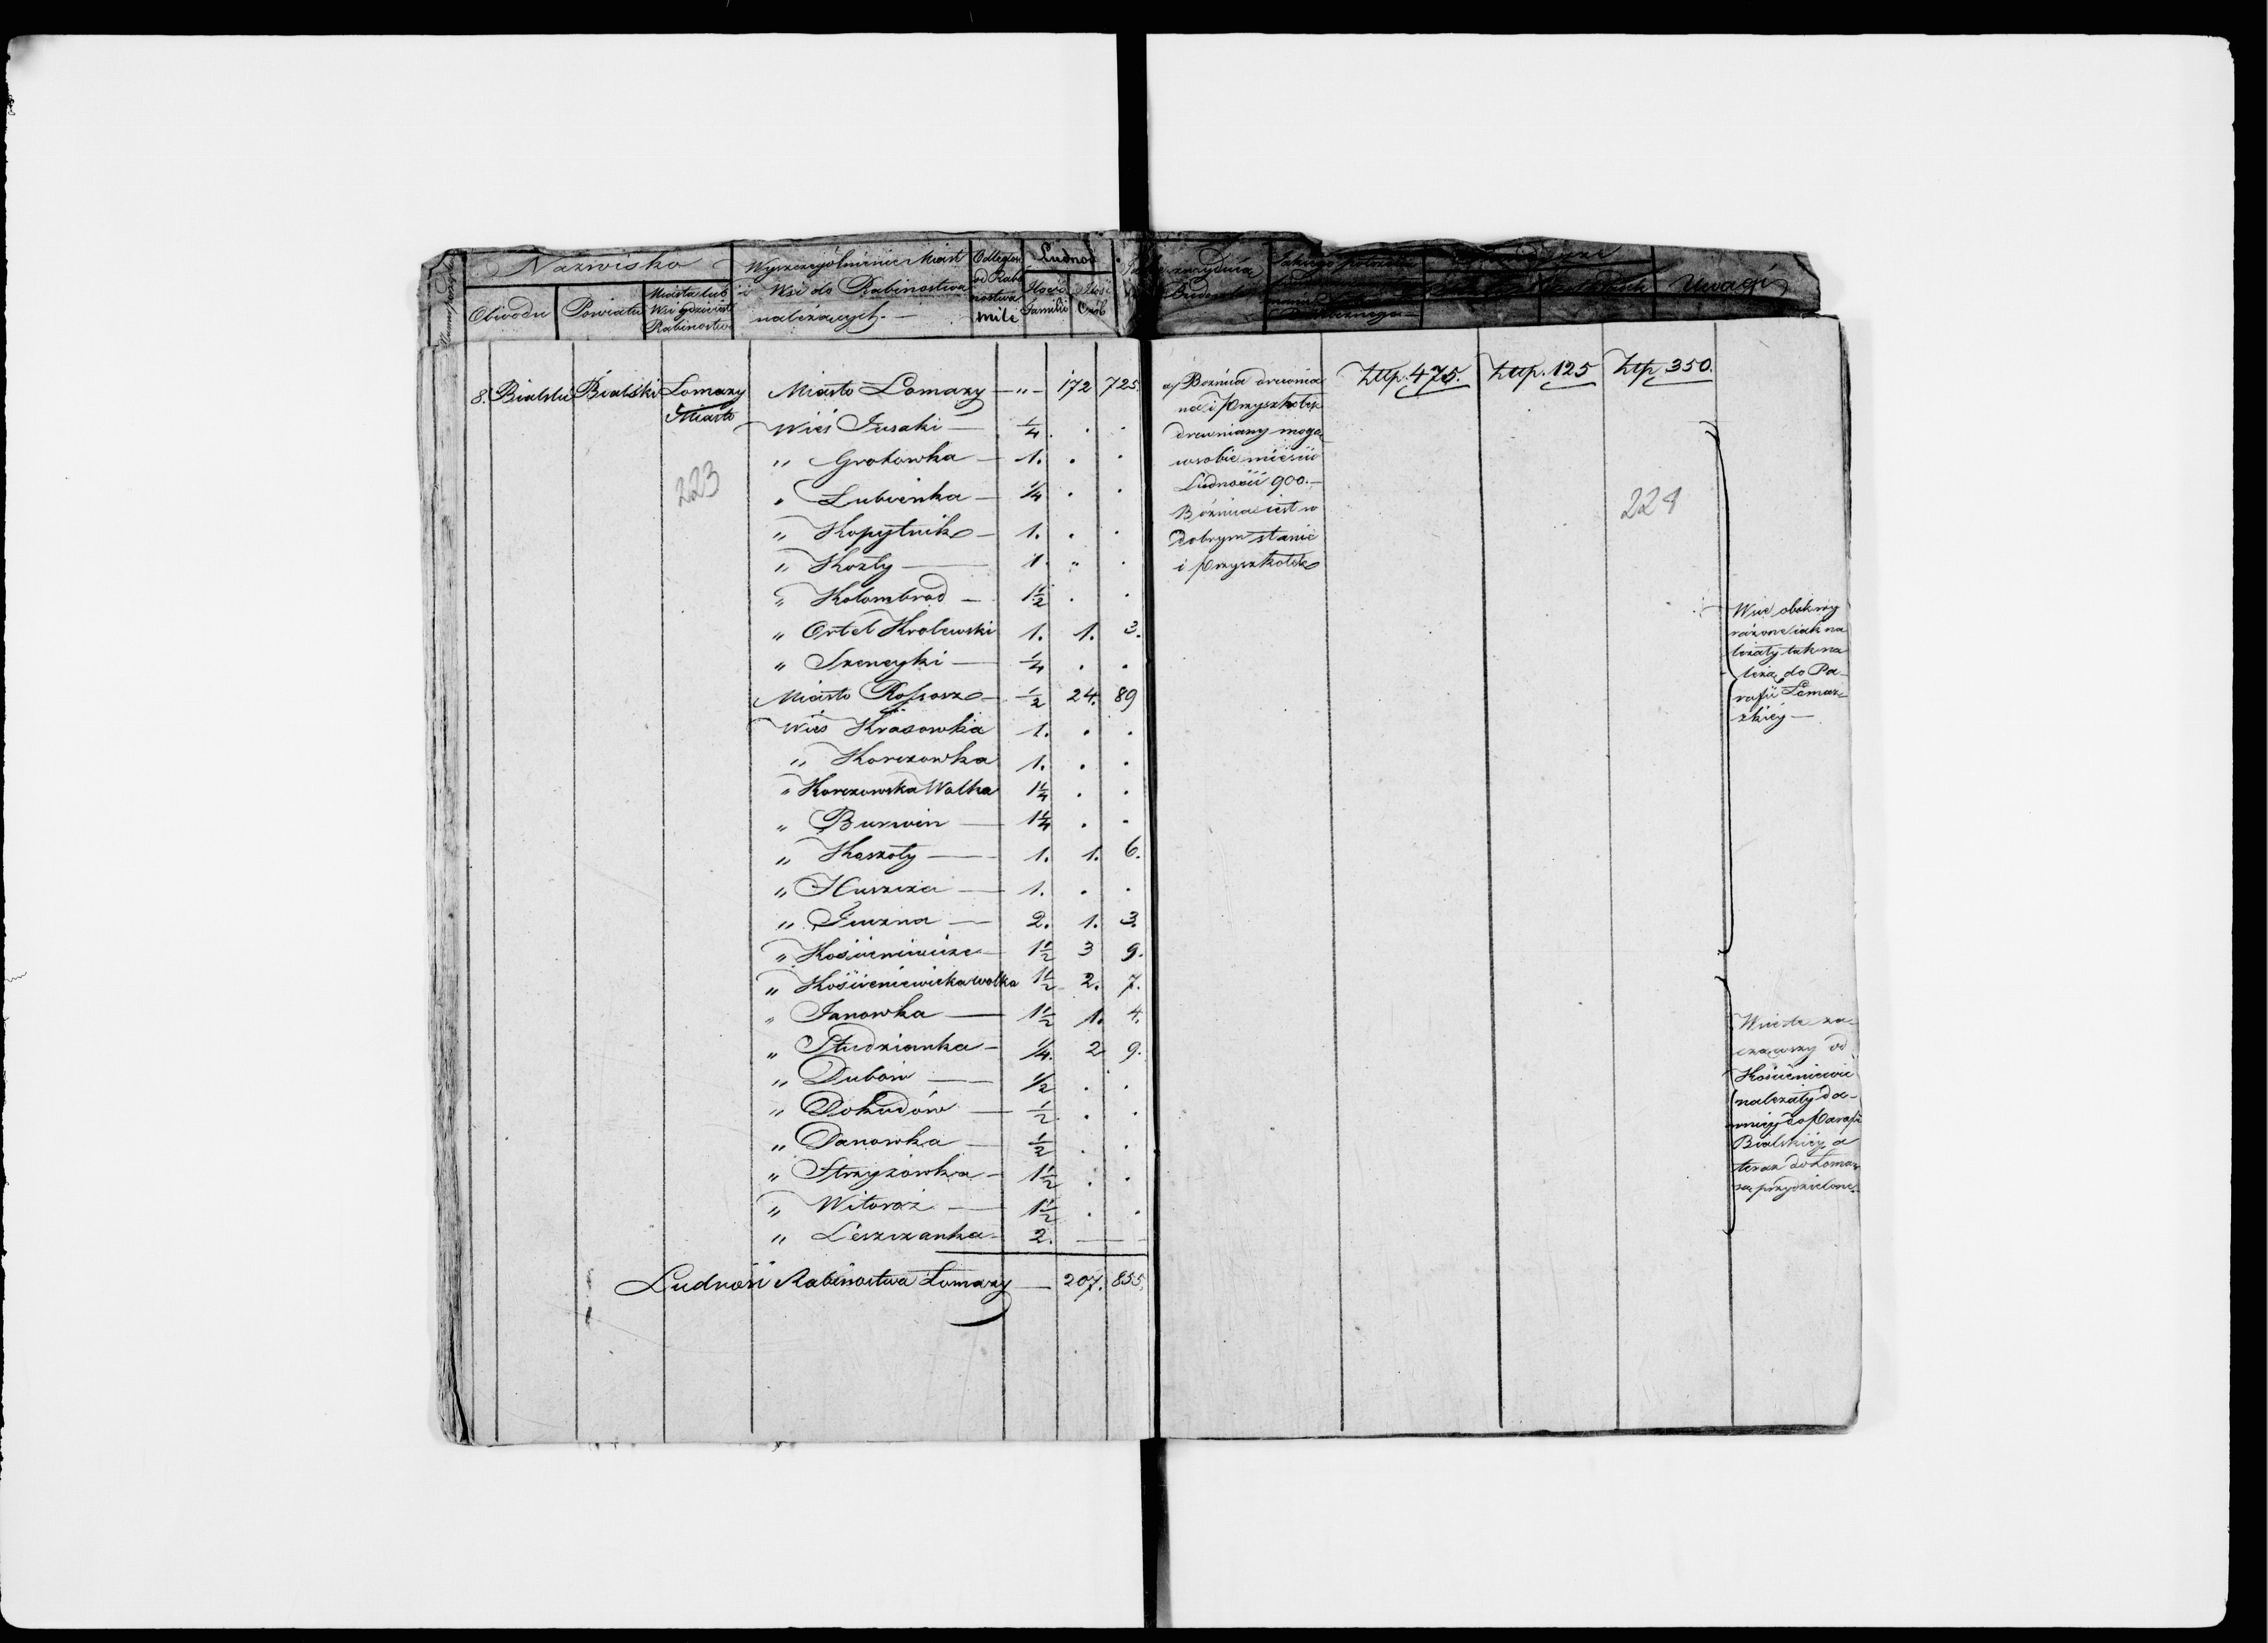 Nazwisko
Obwodu
Powiatu
Miasta lub
Wsi gdzie iest
Rabinostwo
Wyszczególnienie Miast
i Wsi do Rabinostwa
należących. —
Odległość
od Rabi
nostwa
mile
Ludność
Ilość
Familii
Ilość
Osób
Uwagi
8. Bialski Bialski Łomazy Miasto Łomazy — „ — 172 725.
Miasto
Wieś Jusaki — 1/4 . .
„ Grabowka — 1. . .
„ Lubienka — 1/4 . .
„ Kopytnik — 1. . .
„ Kozły — 1. „ .
„ Kolombrod — 1 1/2 . .
„ Ortel Krolewski 1. 1. 3.
„ Szeneyki — 1/4 . .
Miasto Rossosz — 1/2 24. 89
Wieś Krasowka 1. . .
„ Korczowka 1. . .
„ Korczowska Wolka 1 1/4 . .
„ Burwin — 1 1/4 . .
„ Koszoły — 1. 1. 6.
„ Huszcza — 1. . .
„ Tuczna — 2. 1. 3.
„ Kościeniewicze — 1 1/2 3 9.
„ Kościeniewicka wolka 1 1/2 2. 7.
„ Janowka — 1 1/2 1. 4.
„ Studzianka — 1/4. 2 9.
„ Dubow — 1/2 . .
„ Dokudów — 1/2 . .
„ Danowka — 1/2 . .
„ Strzyżówka — 1 1/2 . .
„ Witoroż — 1 1/2 . .
„ Leszczanka — 2. — —
Ludność Rabinostwa Łomazy — 207. 855.
223
a/ Boźnica drewnia
na i przyszkołek
drewniany mogą
w sobie mieścić
Ludności 900. —
Bóżnica iest w
dobrym stanie
i przyszkołek
złtp. 475. złtp. 125 złtp. 350.
224
Wsie obok wy
rażone iak na
leżały tak na
leżą do Pa-
rafii Łomaz-
kiéy —
Wsie te za-
cząwszy od
Kościeniewic
należały da-
wniey do Parafii
Bialskiéy a
teraz do Łomaz
są przydzielone.